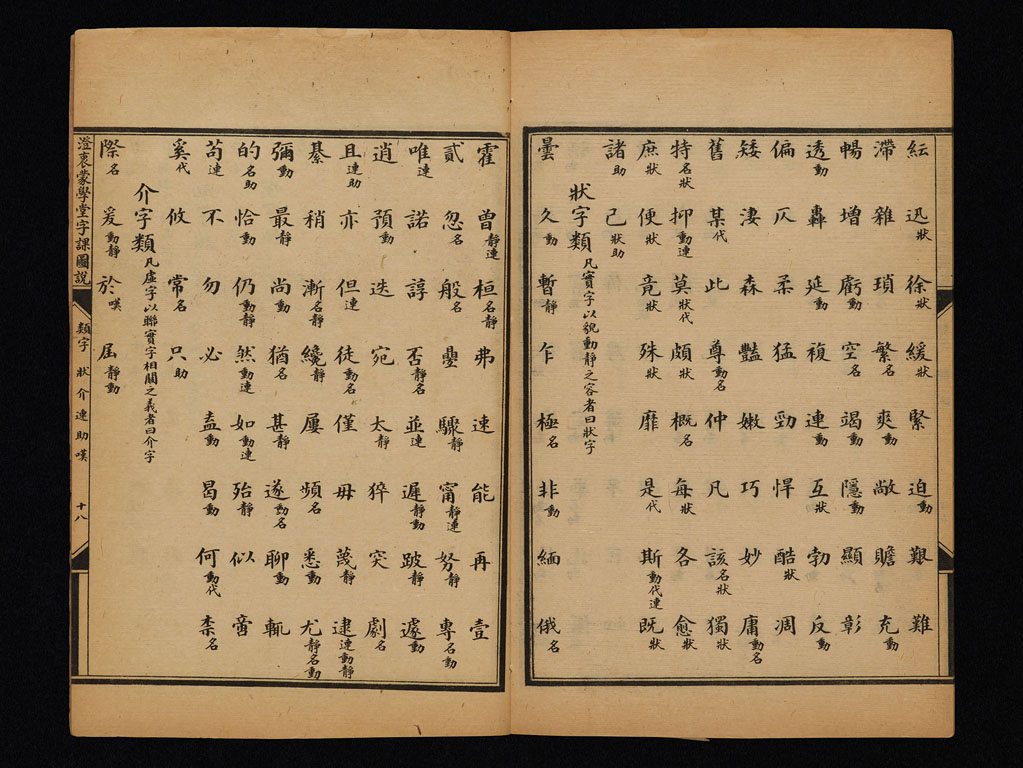 紜 迅狀 徐狀 緩狀 緊 迫動 艱 難
滯 雜 瑣 繁名 爽動 敞 贍 充動
暢 增 虧動 空名 竭動 隱動 顯 彰
透動 轟 延動 複 連動 互狀 勃 反動
偏 仄 柔 猛 勁 悍 酷狀 凋
矮 淒 森 豔 嫩 巧 妙 庸動名
舊 某代 此 尊動名 仲 凡 該名狀 獨狀
特名狀 抑動連 莫狀代 頗狀 概名 每狀 各 愈狀
庶狀 便狀 竟狀 殊狀 靡 是代 斯動代連 既狀
諸助 己狀助
狀字類 凡實字以貌動靜之容者曰狀字
曇 久動 暫靜 乍 極名 非動 緬 俄名
霍 曾靜連 桓名靜 弗 速 能 再 壹
貳 忽名 般名 疊 驟靜 甯靜連 努靜 專名動
唯連 諾 諄 否靜名 並連 遲靜動 跛靜 遽動
逍 預動 迭 宛 太靜 猝 突 劇名
且連助 亦 但連 徒動名 僅 毋 蔑靜 逮連動靜
綦 稍 漸名靜 纔靜 屢 頻名 悉動 尤靜名動
彌動 最靜 尚動 猶名 甚靜 遂動名 聊動 輒
的名助 恰動 仍動靜 然動連 如動連 殆靜 似 啻
苟連 不 勿 必 盍動 曷動 何動代 柰名
奚代 攸 常名 只助
介字類 凡虛字以聯實字相關之義者曰介字
際名 爰動靜 於嘆 屆靜動
澄衷蒙學堂字課圖說
類字 狀介連助嘆 十八